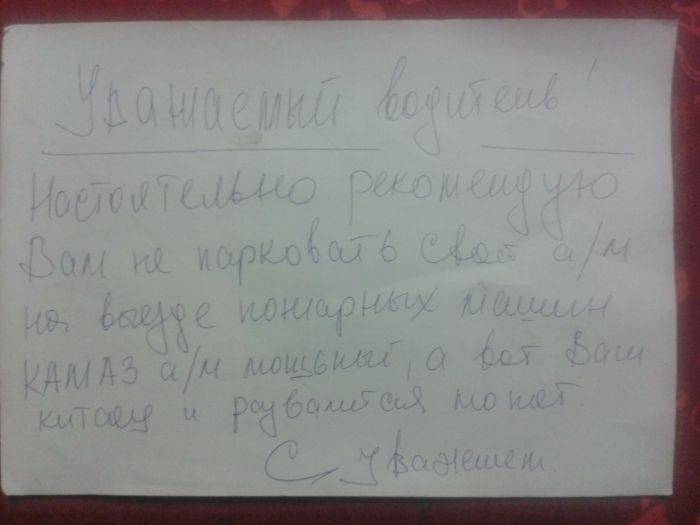 Уважаемый водитель!
Настоятельно рекомендую
Вам не парковать свой а/м
на выезде пожарных машин
КАМАЗ а/м мощьный, а вот Ваш
китаец и развалится может.
С Уважением